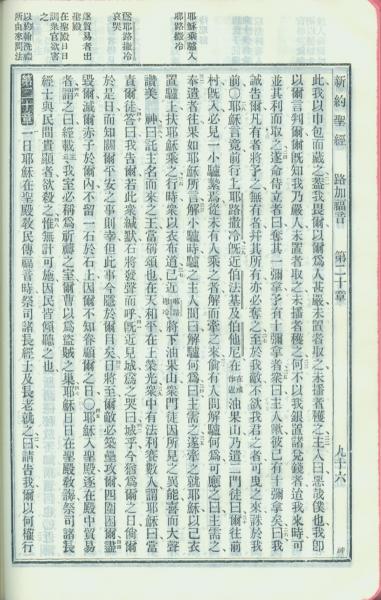 新約聖經 路加福音 第二十章 九十六
此我以巾包而藏之、蓋我畏爾、以爾爲人甚嚴、未置者取之、未播者穫之、主人曰、惡哉僕也、我卽
以爾言判爾、爾旣知我乃嚴人、未置者取之、未播者穫之、何不以我銀置諸兌錢者、迨我來時、可
並其利而取之、遂命侍立者曰、奪其一彌拏、予有十彌拏者、衆曰、主歟、彼已有十彌拏矣、曰、我
誠告爾、凡有者將予之、無有者幷其所有亦必奪之、至於我敵不欲我君之者、可曳之來誅於我
前○耶穌言竟、前行上耶路撒冷、旣近伯法基及伯他尼、在油果山、乃遣二門徒曰、爾往前
村、旣入、必見一小驢繫焉、從未有人乘之者、解而牽之來、倘有人問解驢何爲、可應之曰、主需之、
奉遣者往、果如耶穌所言、解小驢時、驢之主人問曰、解驢何爲、曰、主需之、遂牽之就耶穌、以己衣
置驢上、扶耶穌乘之、行時、衆以衣布道、已近耶路撒冷將下油果山、衆門徒因所見之異能、喜而大聲
讚美 神曰、託主名而來之王、當頌也、在天和平、在上榮光、衆中有法利賽數人謂耶穌曰、當
責爾徒、答曰、我告爾、若此衆緘默、石將發聲而呼、旣近見城、爲之哭曰、嗟乎、今猶爲爾之日、倘爾
於是日而知關爾平安之事則幸、但此事今隱於爾目矣、日將至、爾敵必築壘攻爾、四圍困爾、盡
毀爾、滅爾赤子於爾內、不留一石於石上、因爾不知眷顧爾之日○耶穌入聖殿、逐在殿中貿易
者、謂之曰、經載云、我室必稱爲祈禱之室、爾曹以爲盜賊之巢、耶穌日日在聖殿敎誨、祭司諸長
經士與民間貴顯者欲殺之、惟無計可施、因民皆傾聽之也
第二十章 一日耶穌在聖殿敎民傳福音時、祭司諸長經士及長老就之曰、請告我、爾以何權行
耶穌乘驢入
耶路撒冷
爲耶路撒冷
哀哭
逐貿易者出
聖殿
在聖殿日日
訓衆官欲害
之
以約翰洗禮
所由來問法